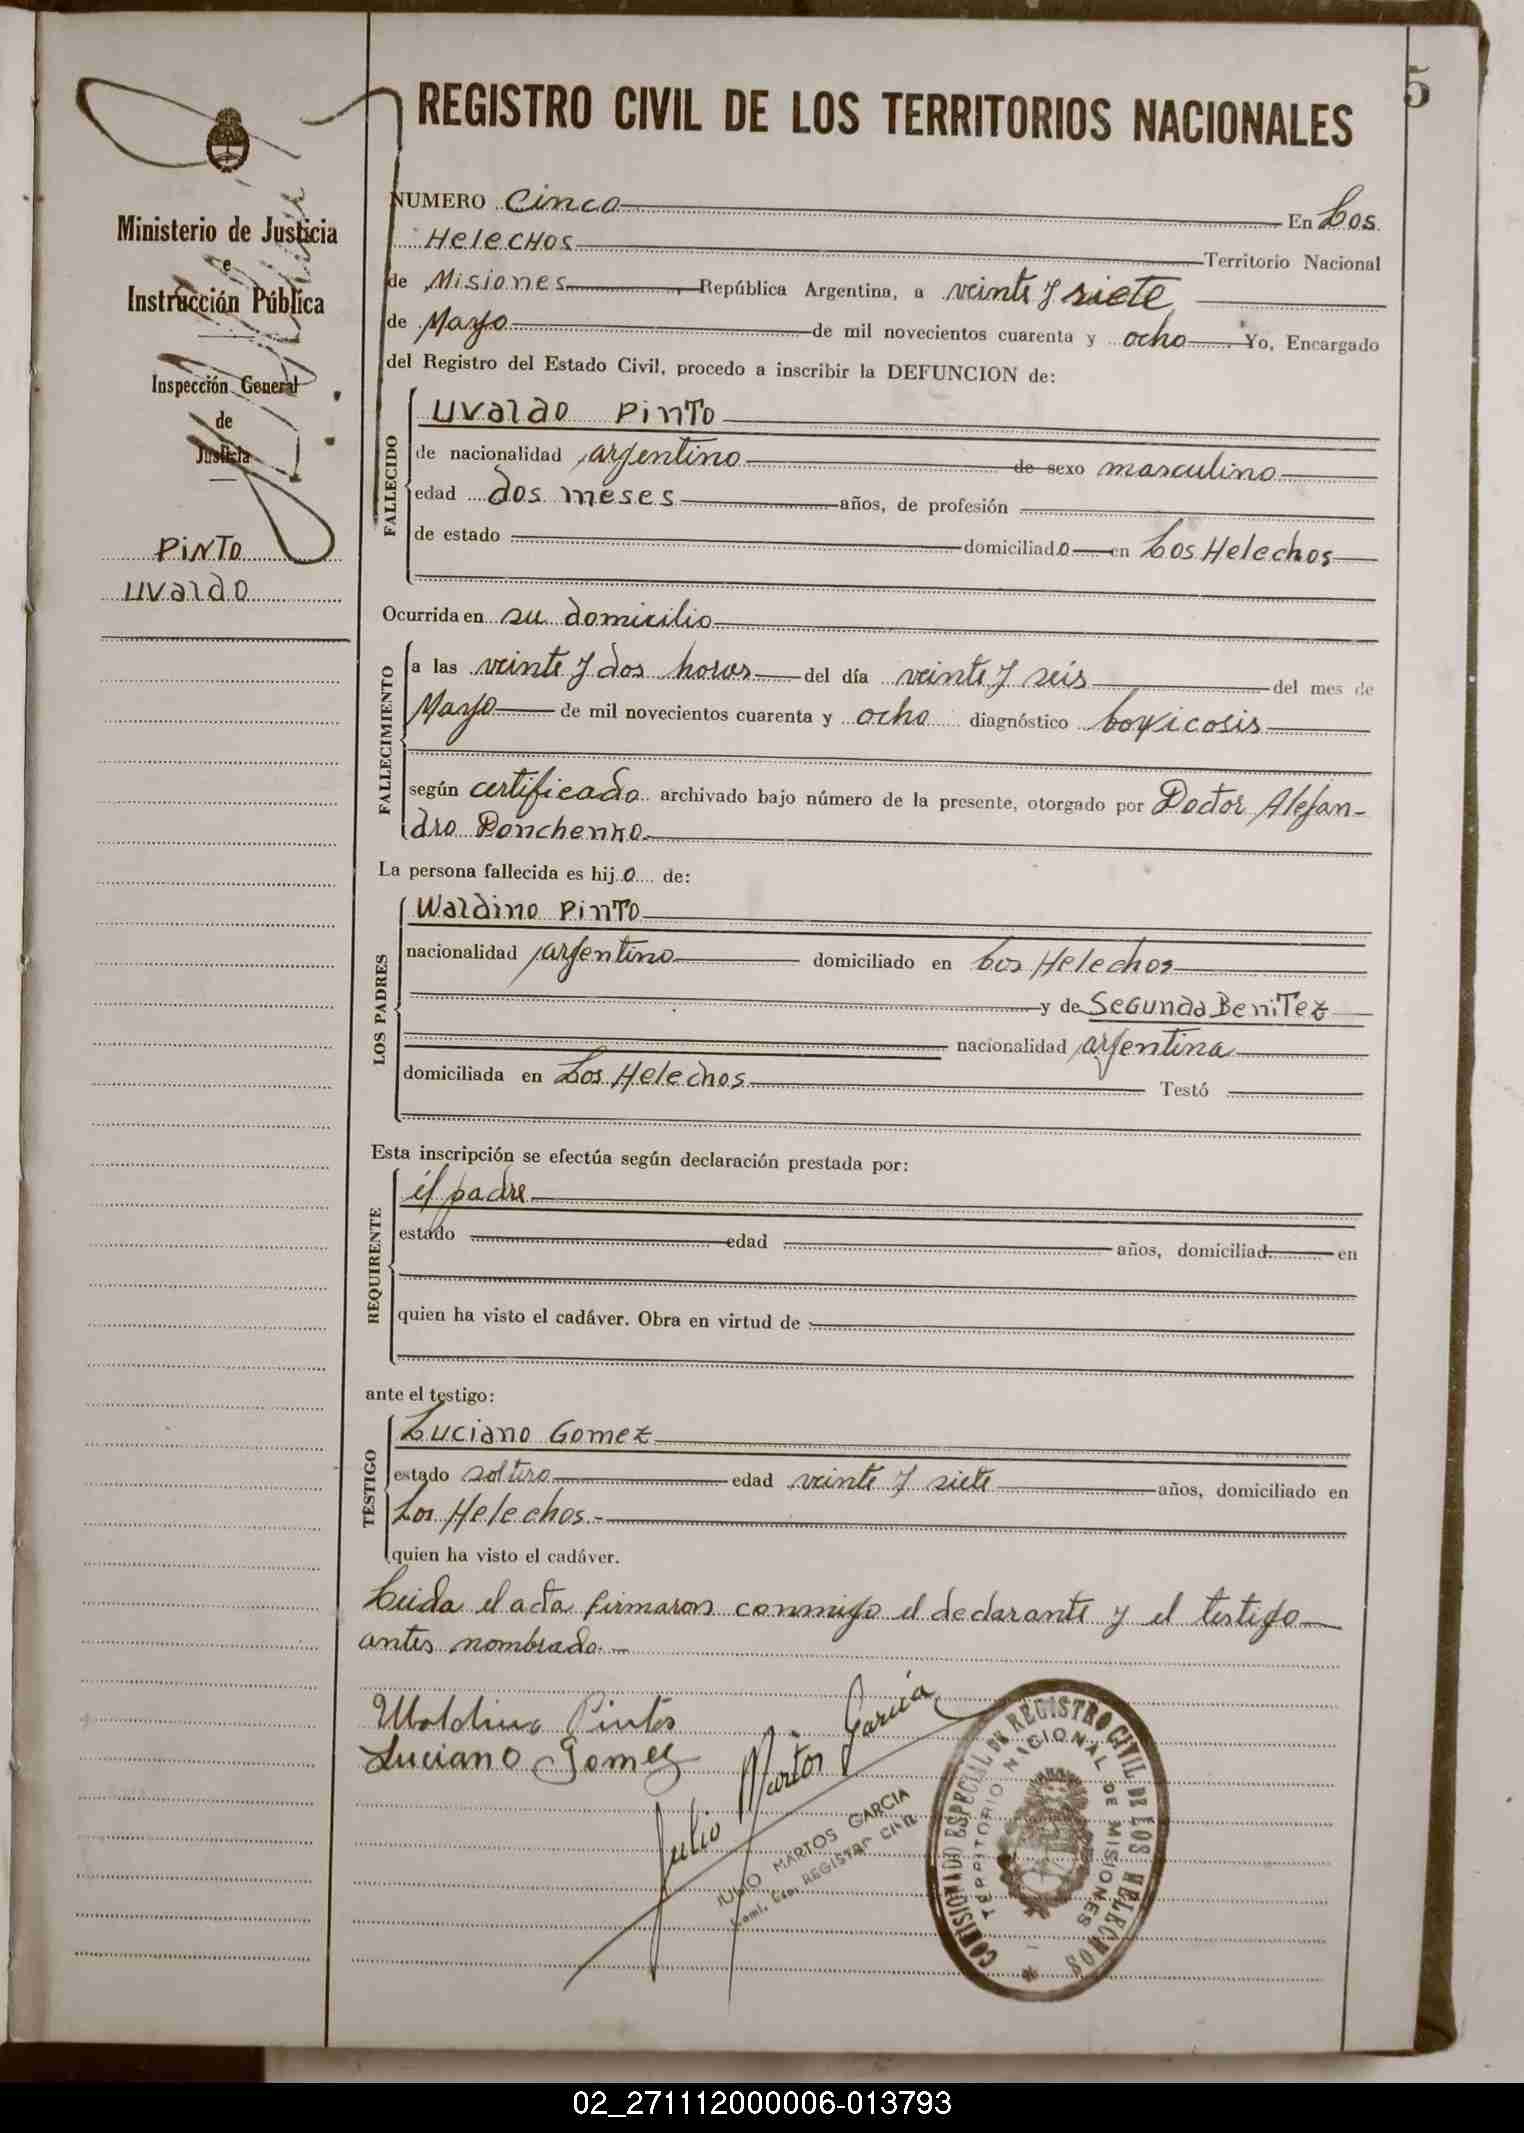 5
REGISTRO CIVIL DE LOS TERRITORIOS NACIONALES
Ministerio de Justicia
e
Instrucción Pública
Inspección General
de
Justicia
PINTO
UVALDO
NUMERO Cinco En Los
Helechos Territorio Nacional
de Misiones República Argentina, a veinte y siete
de Mayo de mil novecientos cuarenta y ocho Yo, Encargado
del Registro del Estado Civil, procedo a inscribir la DEFUNCION de:
FALLECIDO
Uvaldo Pinto
de nacionalidad argentino de sexo masculino
edad dos meses años, de profesión
de estado domiciliado en Los Helechos
Ocurrida en su domicilio
FALLECIMIENTO
a las veinte y dos horas del día veinte y seis del mes de
Mayo de mil novecientos cuarenta y ocho diagnóstico toxicosis
según certificado archivado bajo número de la presente, otorgado por Doctor Alejan-
dro Donchenko
La persona fallecida es hijo de:
LOS PADRES
Waldino Pinto
nacionalidad argentino domiciliado en Los Helechos
y de Segunda Benitez
nacionalidad argentina
domiciliada en Los Helechos Testó
Esta inscripción se efectúa según declaración prestada por:
REQUIRENTE
él padre
estado edad años, domiciliad en
quien ha visto el cadáver. Obra en virtud de
ante el testigo:
TESTIGO
Luciano Gomez
estado soltero edad veinte y siete años, domiciliado en
Los Helechos.-
quien ha visto el cadáver.
Leida el acta firmaron conmigo el declarante y el testigo
antes nombrado.-
Waldino Pinto
Luciano Gomez
Julio Martos Garcia
JULIO MARTOS GARCIA
REGISTRO CIVIL
COMISIONADO ESPECIAL DE REGISTRO CIVIL DE LOS HELECHOS
TERRITORIO NACIONAL DE MISIONES
02_271112000006-013793